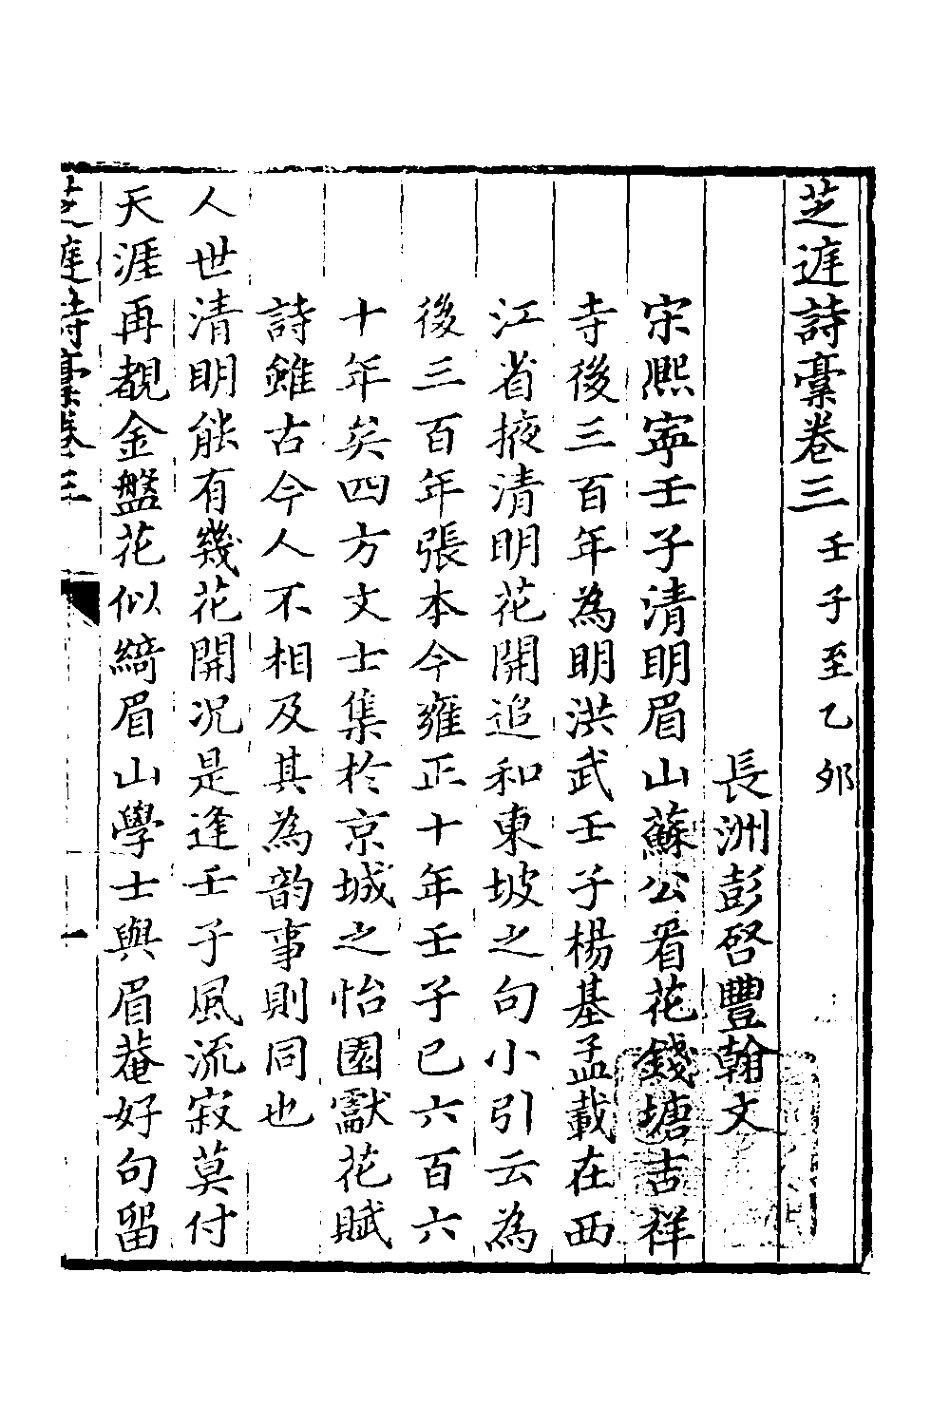 芝庭詩稾卷三 壬子至乙夘
長洲彭啓豐翰文
宋熈寧壬子清明眉山蘇公看花錢塘吉祥
寺後三百年為明洪武壬子楊基孟載在西
江省掖清明花開追和東坡之句小引云為
後三百年張本今雍正十年壬子已六百六
十年矣四方文士集於京城之怡園獻花賦
詩雖古今人不相及其為韵事則同也
人世清明能有幾花開况是逢壬子風流寂莫付
天涯再覩金盤花似綺眉山學士與眉菴好句留
芝庭詩稾卷三
一